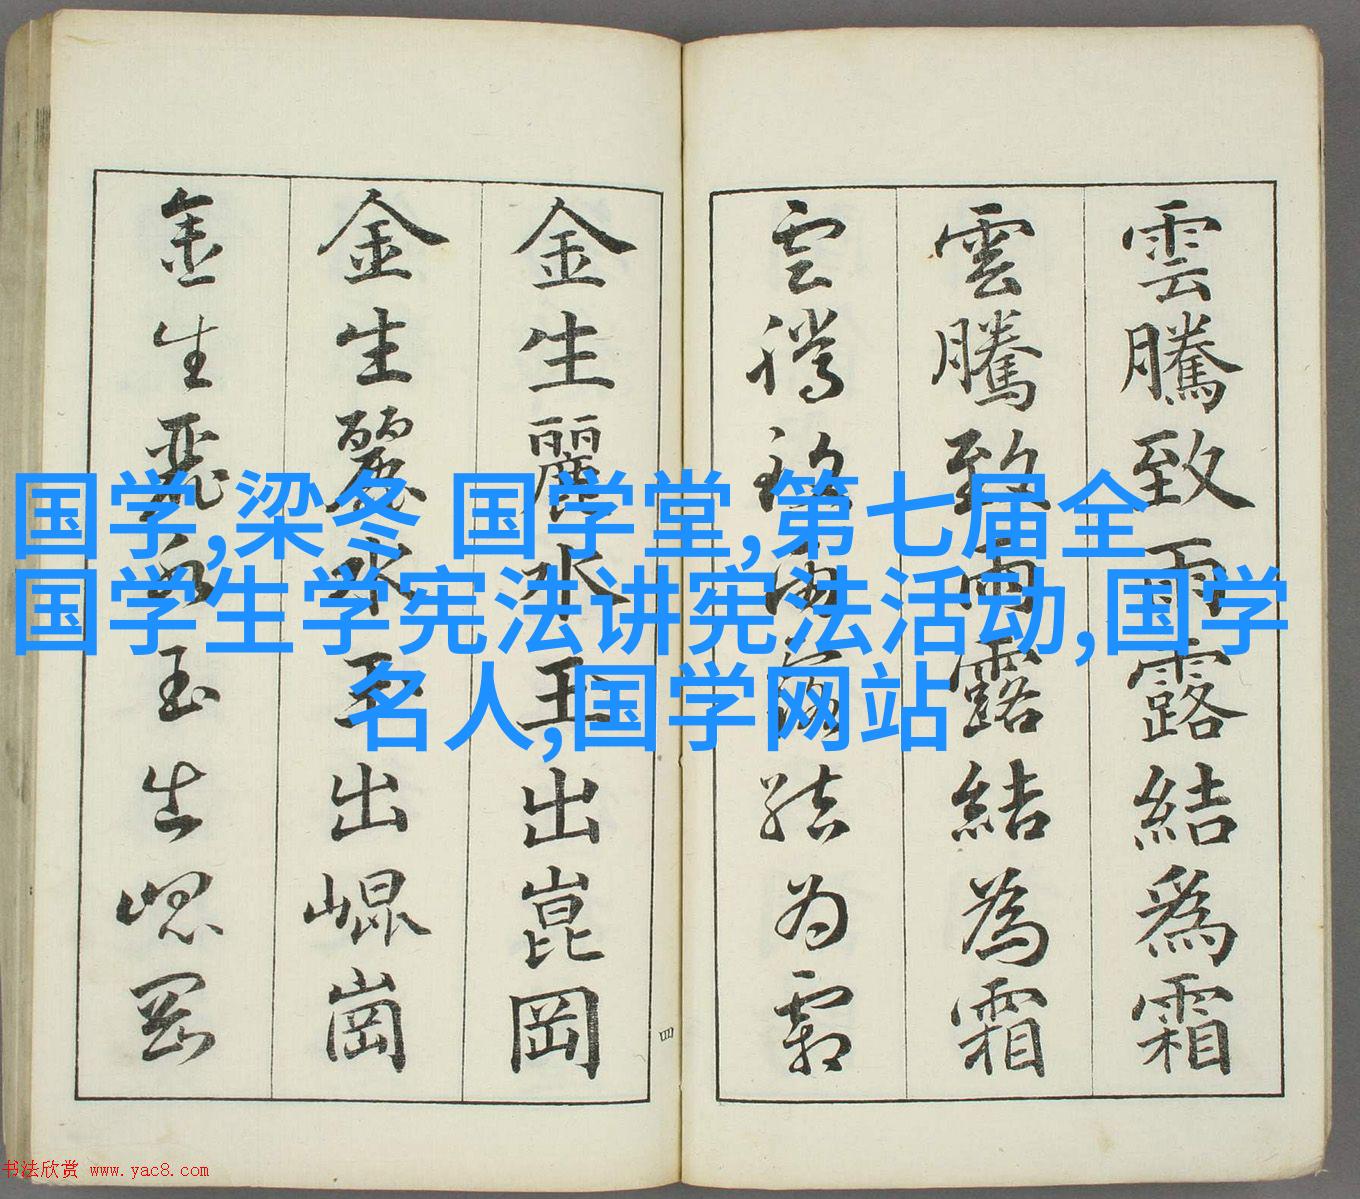 雲騰致雨露結爲霜
雲騰致雨露結為霜
雲騰致雨露結为霜
金生麗水玉出崑岡
金生麗水玉出崐崗
金生麗水玉出崐岡
四
国学,梁冬 国学堂,第七届全
国学生学宪法讲宪法活动,国学
名人,国学网站
书法欣赏 www.yac8.com